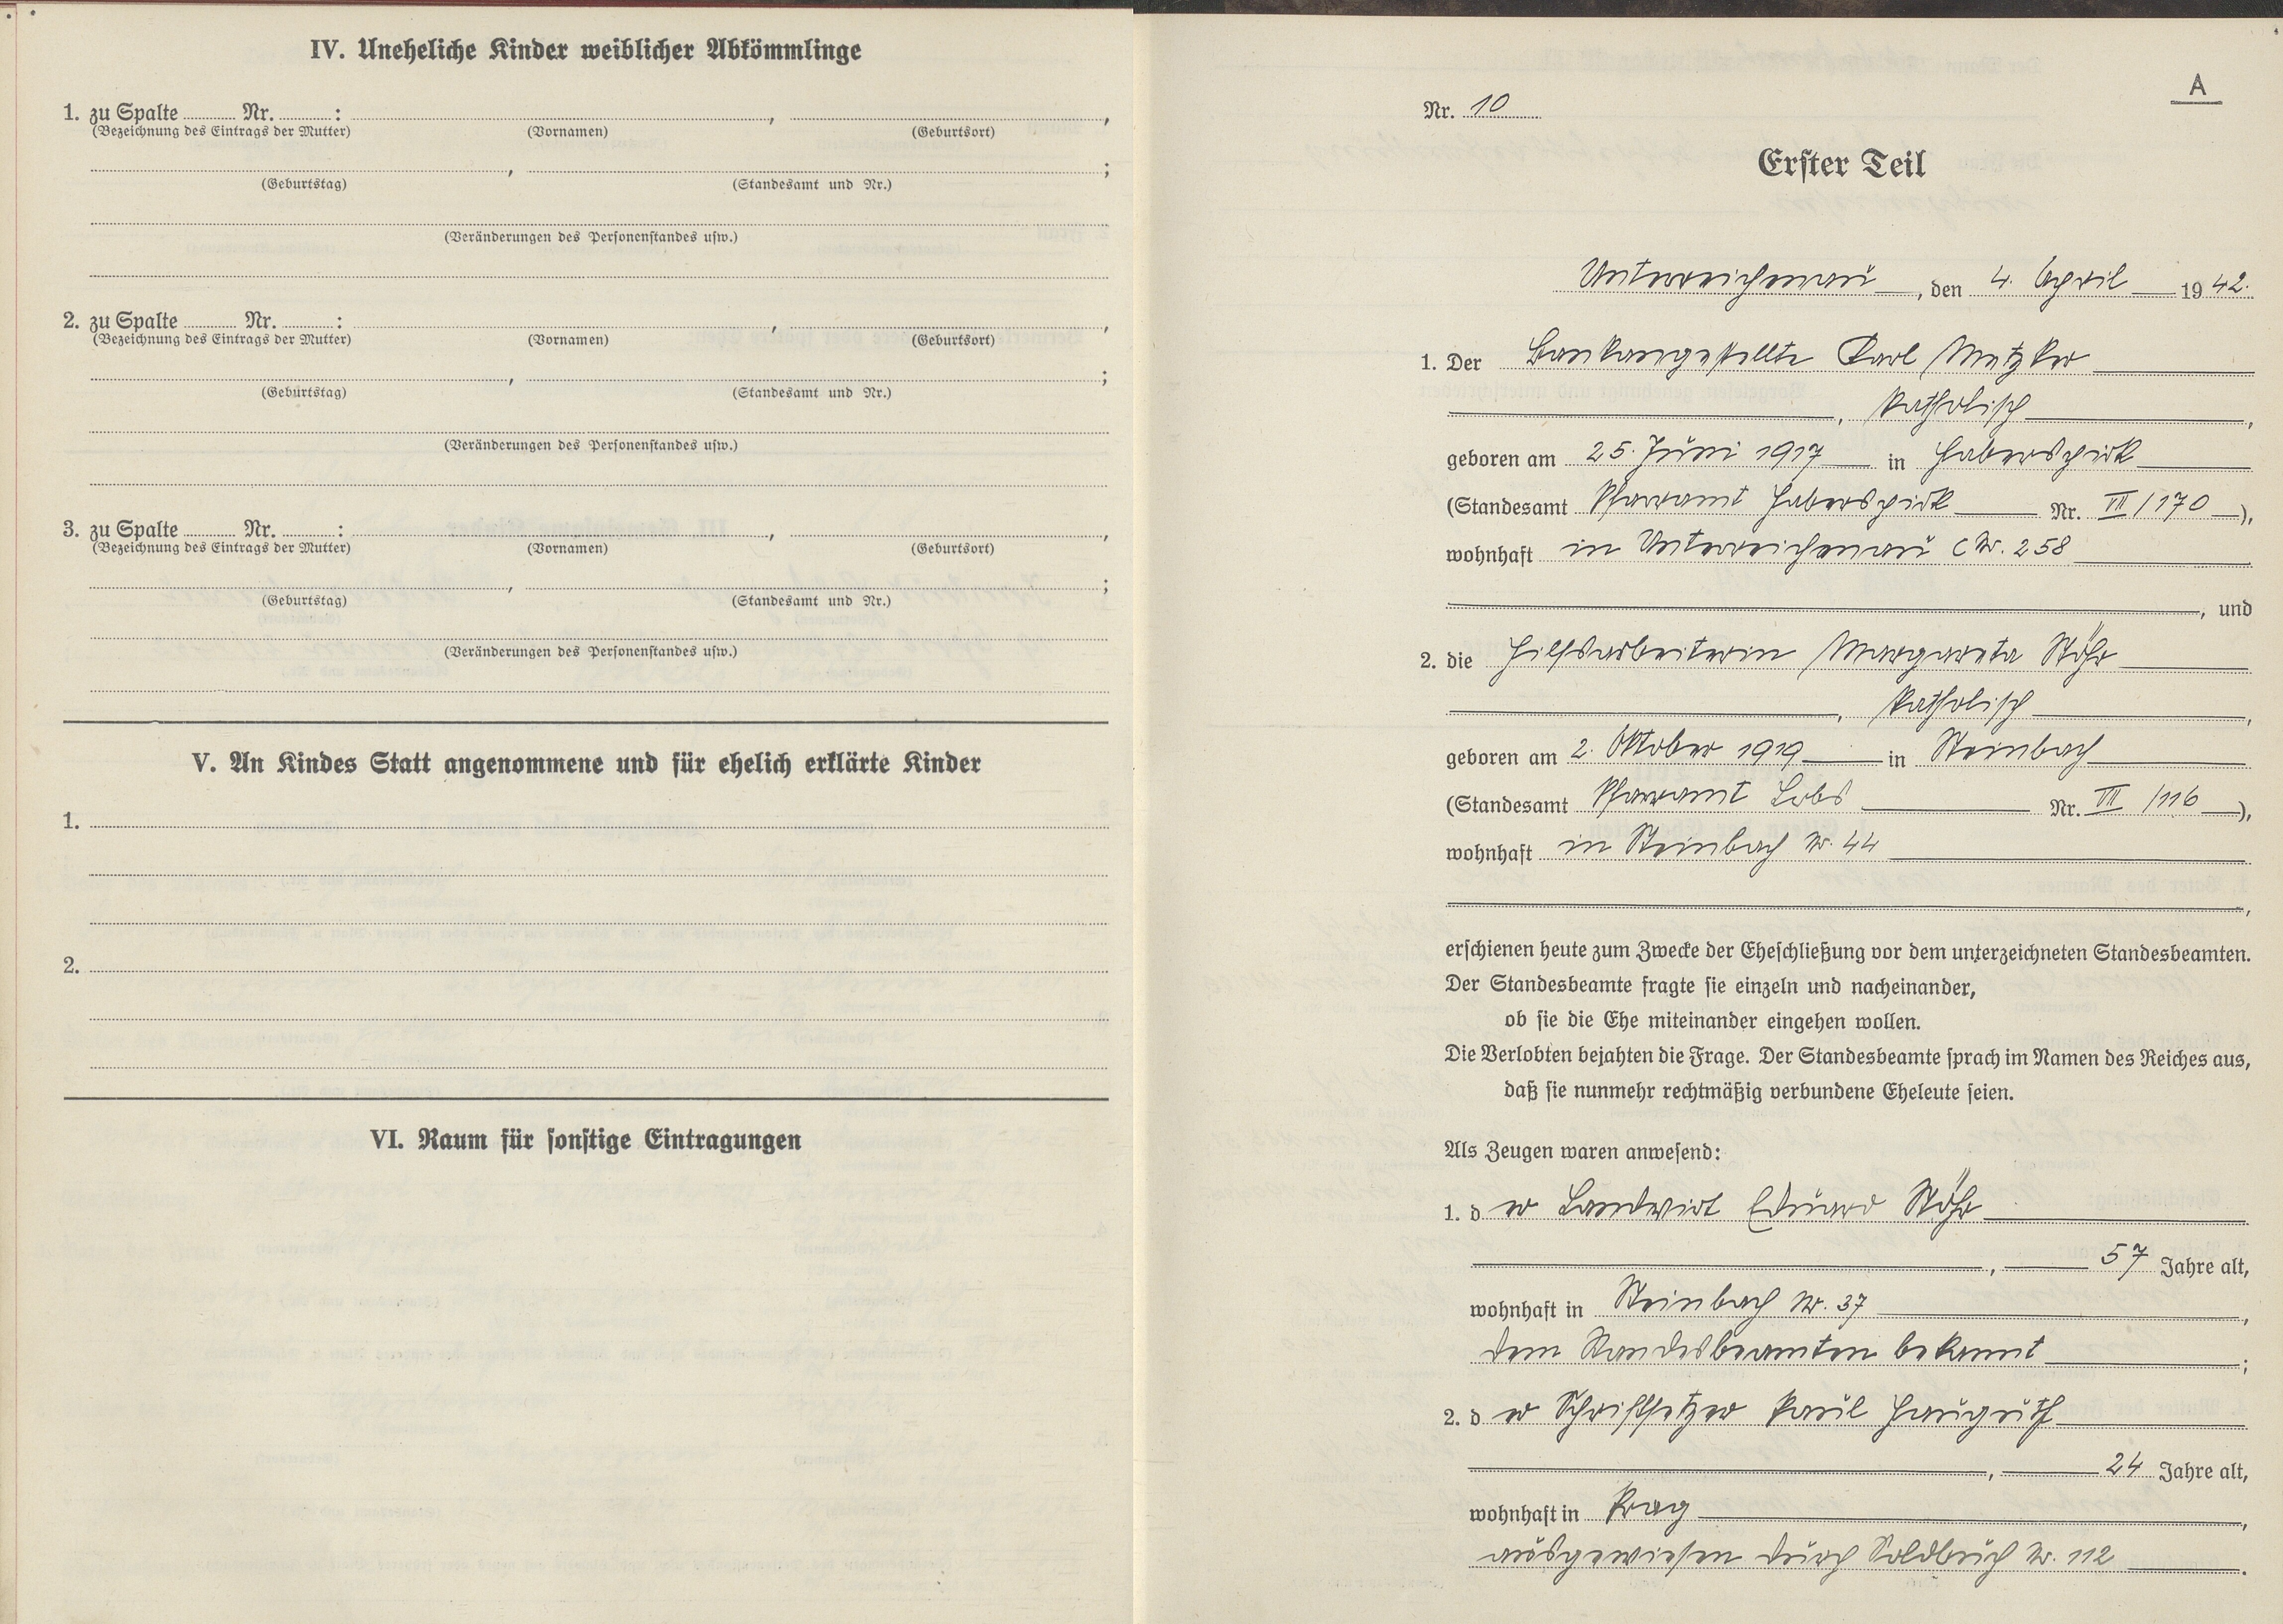 IV. Uneheliche Kinder weiblicher Abkömmlinge
1. zu Spalte ........ Nr. ........ : ........ , ........ ,
(Bezeichnung des Eintrags der Mutter) (Vornamen) (Geburtsort)
........ , ........ ;
(Geburtstag) (Standesamt und Nr.)
(Veränderungen des Personenstandes usw.)
2. zu Spalte ........ Nr. ........ : ........ , ........ ,
(Bezeichnung des Eintrags der Mutter) (Vornamen) (Geburtsort)
........ , ........ ;
(Geburtstag) (Standesamt und Nr.)
(Veränderungen des Personenstandes usw.)
3. zu Spalte ........ Nr. ........ : ........ , ........ ,
(Bezeichnung des Eintrags der Mutter) (Vornamen) (Geburtsort)
........ , ........ ;
(Geburtstag) (Standesamt und Nr.)
(Veränderungen des Personenstandes usw.)
V. An Kindes Statt angenommene und für ehelich erklärte Kinder
1.
2.
VI. Raum für sonstige Eintragungen
A
Nr. 10
Erster Teil
Unterreichenau, den 4. April 1942.
1. Der Bankangestellte Karl Metzker
, katholisch,
geboren am 25. Juni 1917 in Haberspirk
(Standesamt Pfarramt Haberspirk Nr. III/170),
wohnhaft in Unterreichenau Nr. 258
, und
2. die Hilfsarbeiterin Margareta Stöhr
, katholisch,
geboren am 2. Oktober 1919 in Steinbach
(Standesamt Pfarramt Lobs Nr. III/116),
wohnhaft in Steinbach Nr. 44
,
erschienen heute zum Zwecke der Eheschließung vor dem unterzeichneten Standesbeamten.
Der Standesbeamte fragte sie einzeln und nacheinander,
ob sie die Ehe miteinander eingehen wollen.
Die Verlobten bejahten die Frage. Der Standesbeamte sprach im Namen des Reiches aus,
daß sie nunmehr rechtmäßig verbundene Eheleute seien.
Als Zeugen waren anwesend:
1. der Landwirt Eduard Stöhr
, 57 Jahre alt,
wohnhaft in Steinbach Nr. 37,
dem Standesbeamten bekannt;
2. der Schriftsetzer Paul Hauguth
, 24 Jahre alt,
wohnhaft in Prag,
ausgewiesen durch Soldbuch Nr. 112.